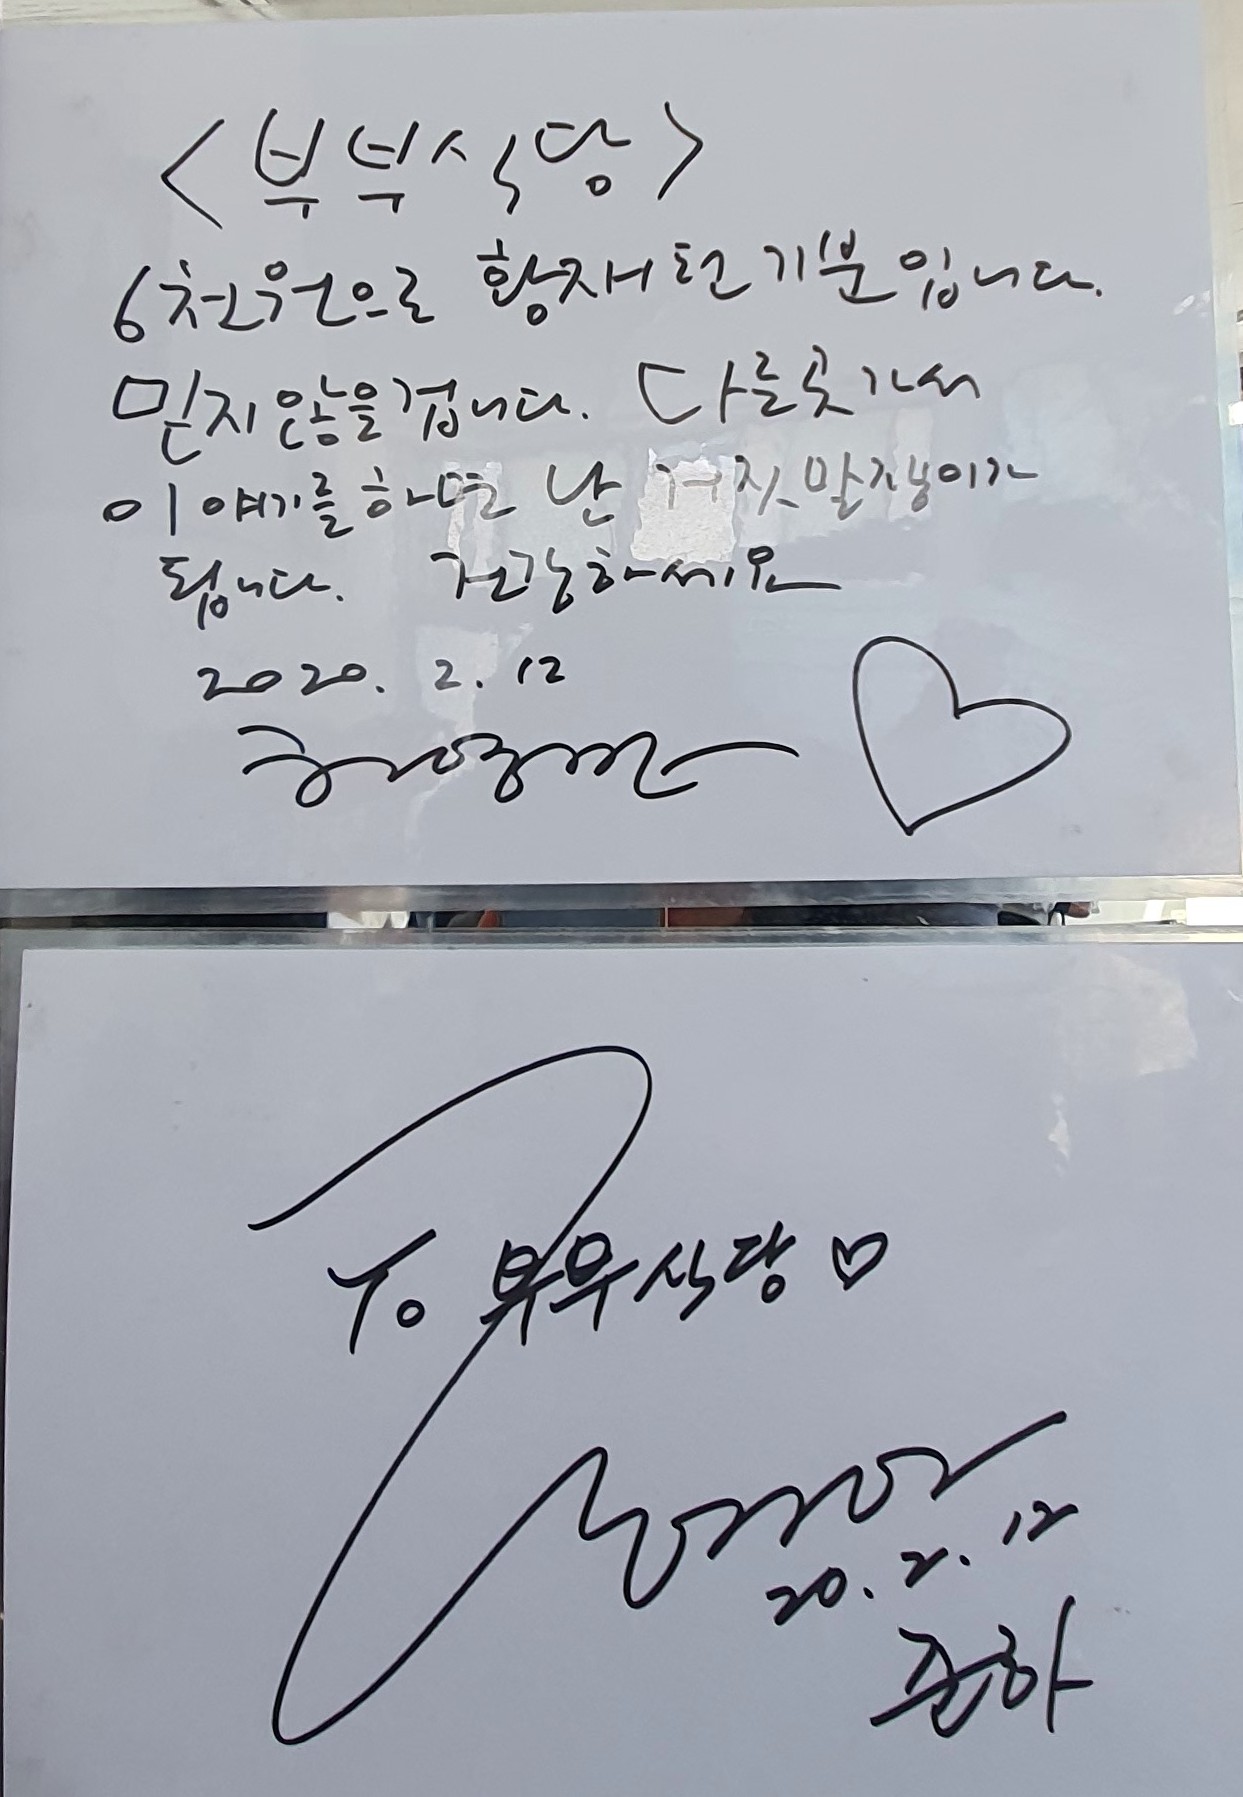 <부부식당>
6천원으로 황재 된 기분입니다.
믿지 않을겁니다. 다른곳 가서
이 얘기를 하면 난 거짓말쟁이가
됩니다. 건강하세요
2020. 2. 12
To 부부식당 ♡
20. 2. 12
준하